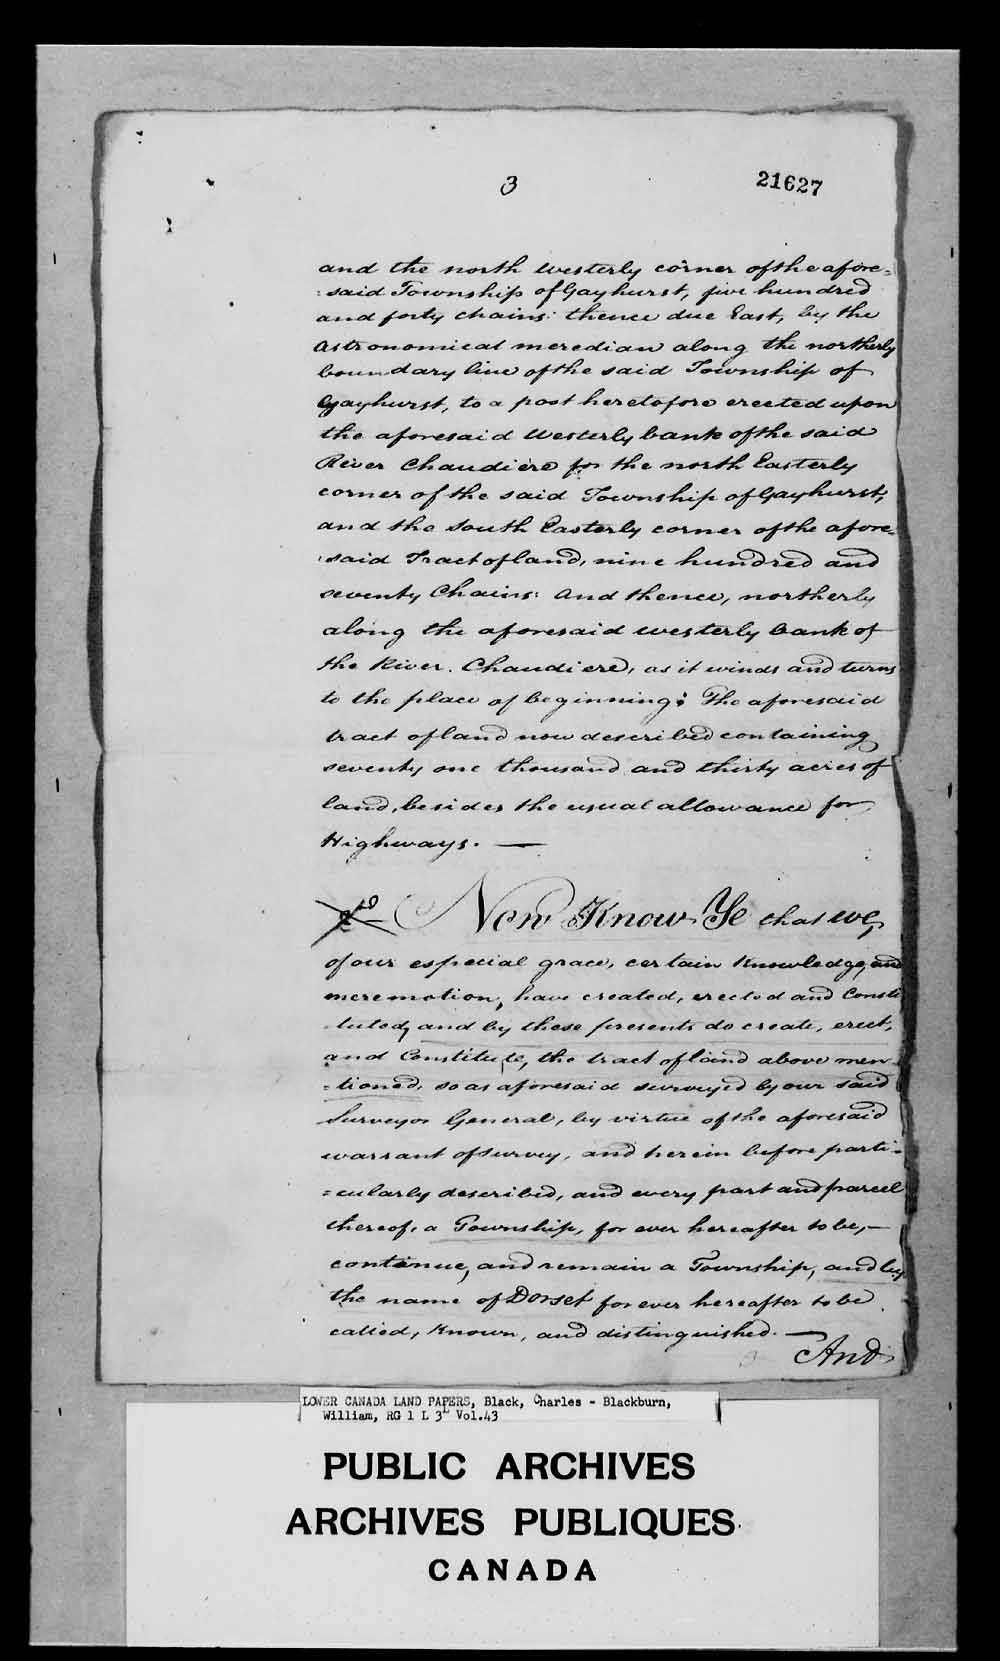 3
21627
and the north westerly corner of the afore=
=said Township of Gayhurst, five hundred
and forty chains: thence due East, by the
Astronomical meredian along the northerly
boundary line of the said Township of
Gayhurst, to a post heretofore erected upon
the aforesaid Westerly bank of the said
River Chaudière for the north Easterly
corner of the said Township of Gayhurst,
and the South Easterly corner of the afore=
said Tract of land, nine hundred and
seventy Chains: And thence, northerly
along the aforesaid westerly bank of
the River Chaudiere, as it winds and turns
to the place of beginning; The aforesaid
tract of land now described containing
seventy one thousand and thirty acres of
land, besides the usual allowance for
Highways. —
Now Know Ye that we,
of our especial grace, certain Knowledge, and
mere motion, have created, erected and Consti
tuted, and by these presents do create, erect,
and Constitute, the tract of land above men=
=tioned, so as aforesaid surveyed by our said
Surveyor General, by virtue of the aforesaid
warrant of survey, and herein before parti=
=cularly described, and every part and parcel
thereof, a Township, for ever hereafter to be,—
continue, and remain a Township, and by
the name of Dorset for ever hereafter to be
called, Known, and distinguished. —
And
LOWER CANADA LAND PAPERS, Black, Charles - Blackburn,
William, RG 1 L 3L Vol.43
PUBLIC ARCHIVES
ARCHIVES PUBLIQUES
CANADA